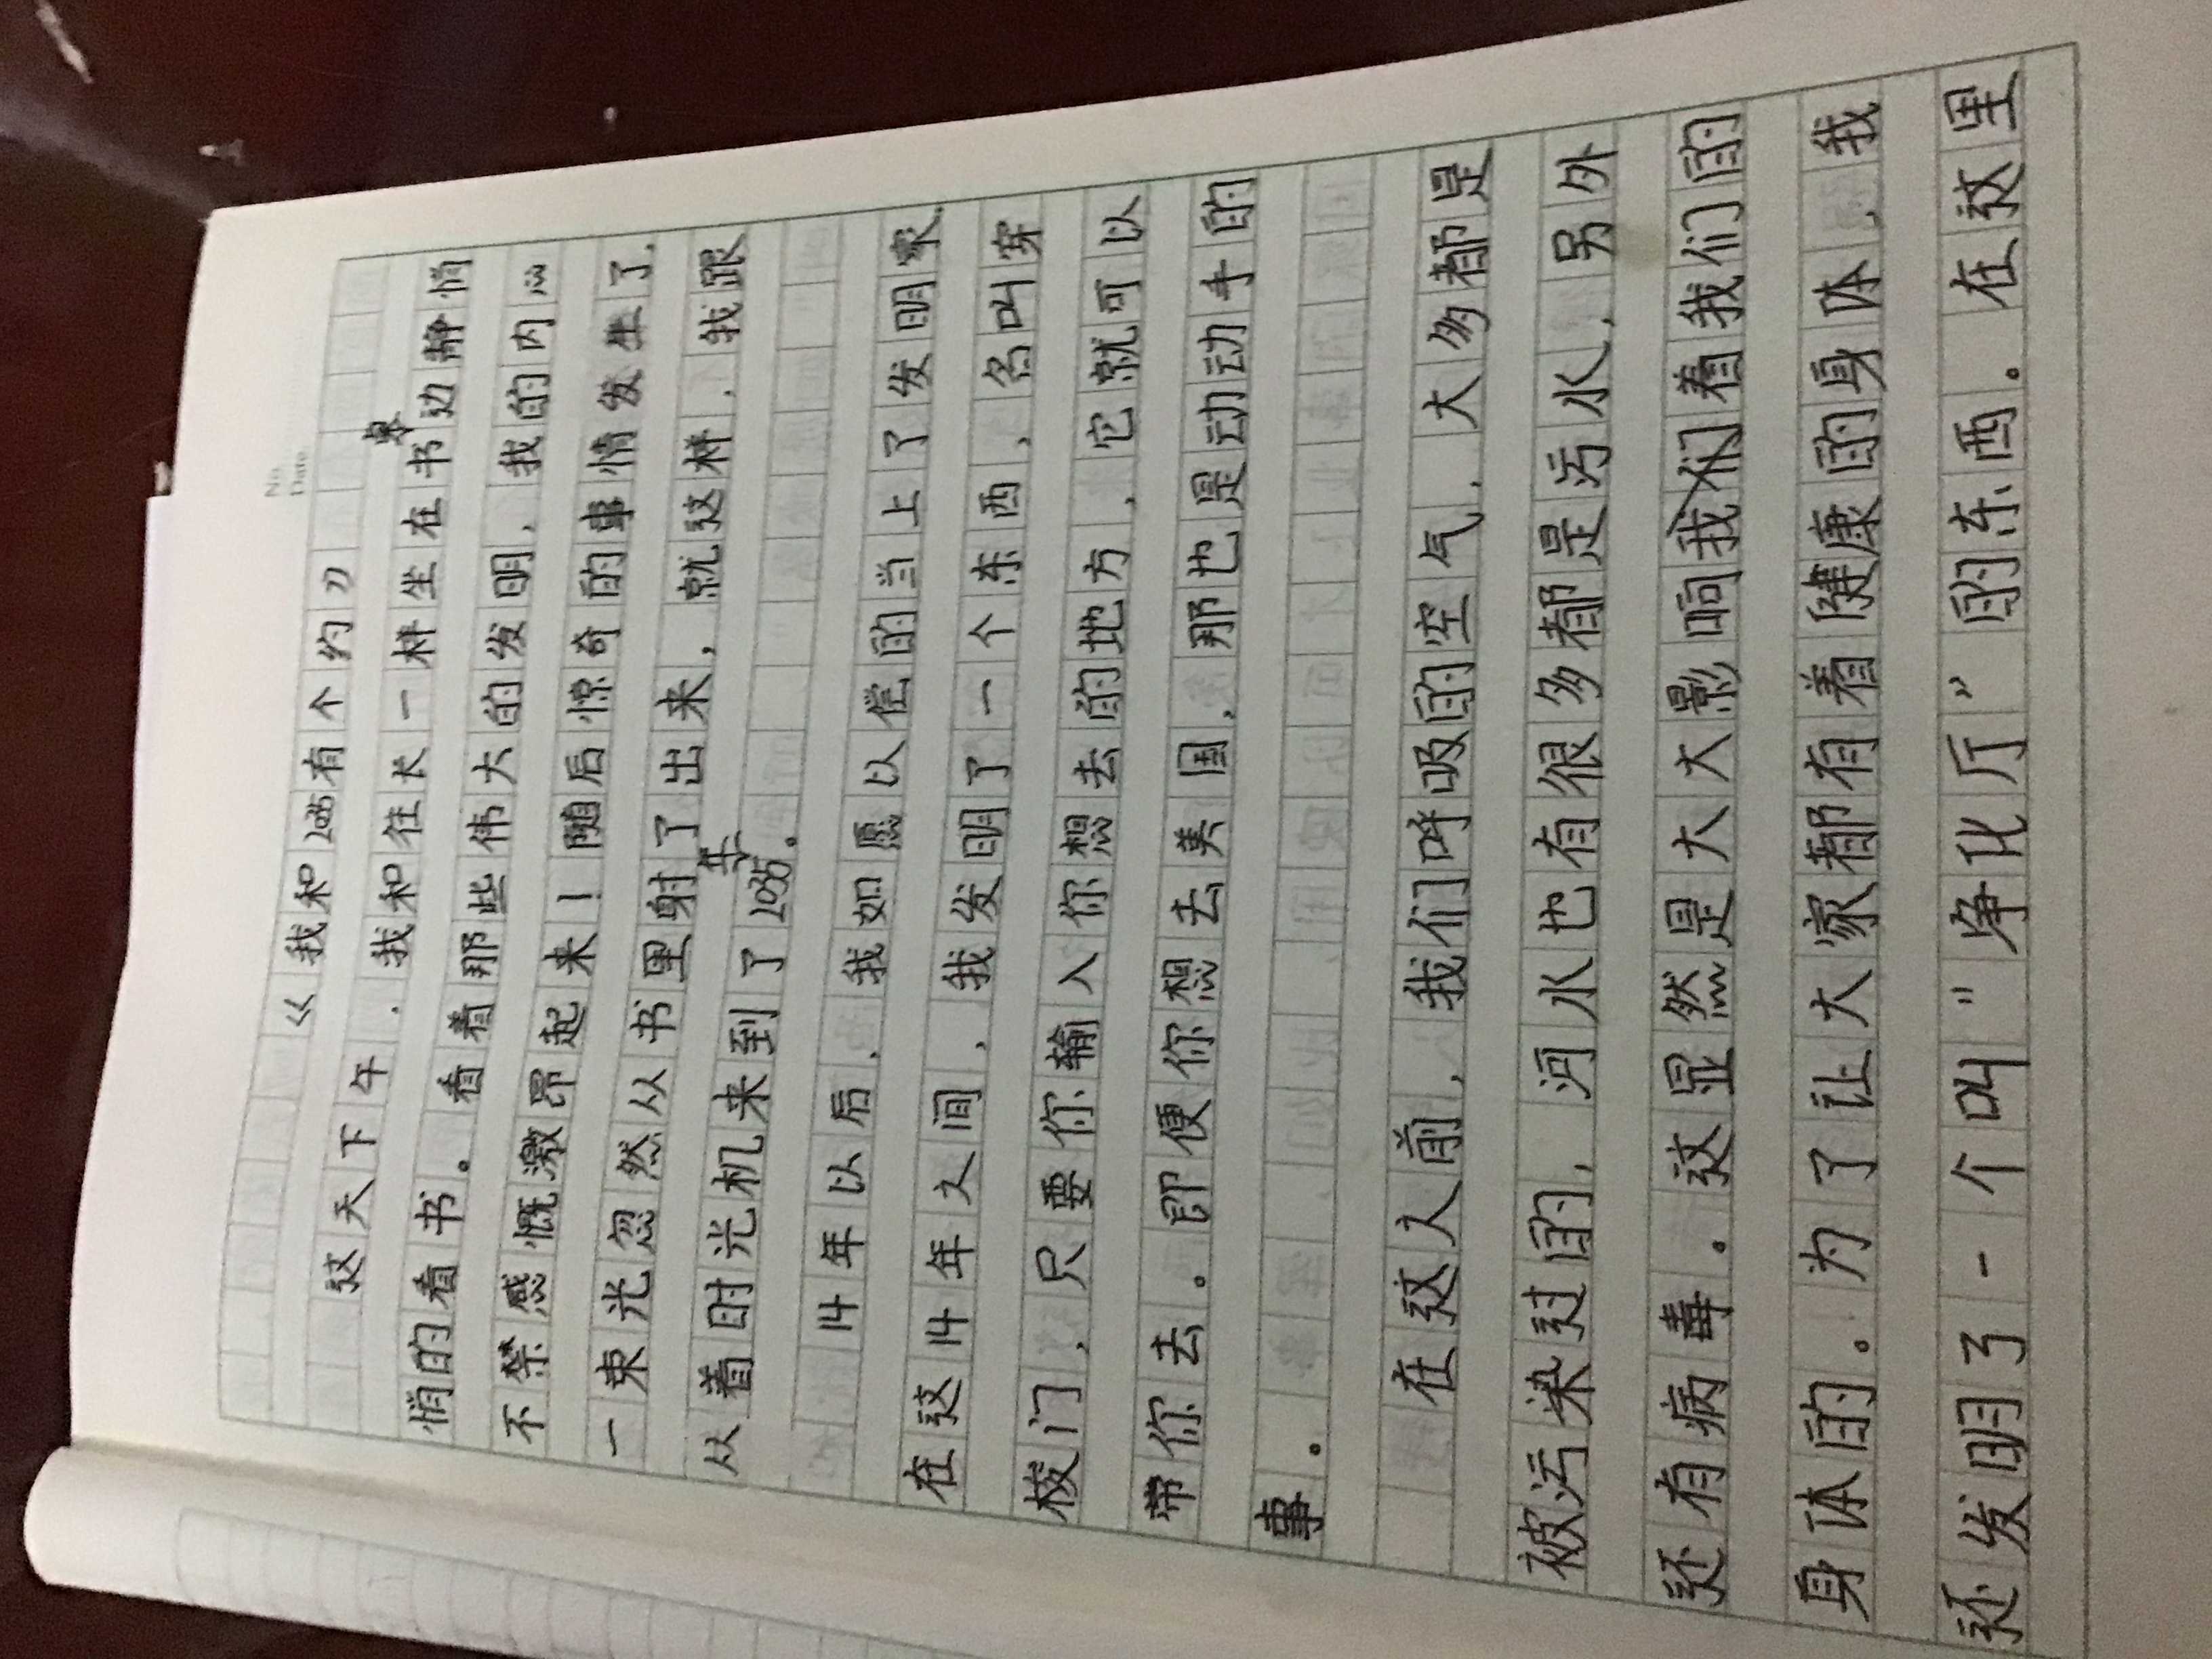 No.
Date
《我和2035有个约》
这天下午，我和往长一样坐在书桌边静悄
悄的看书。看着那些伟大的发明，我的内心
不禁感慨激昂起来！随后惊奇的事情发生了，
一束光忽然从书里射了出来，就这样，我跟
从着时光机来到了2035年。
14年以后，我如愿以偿的当上了发明家，
在这14年久间，我发明了一个东西，名叫穿
梭门，只要你输入你想去的地方，它就可以
带你去。即便你想去美国，那也是动动手的
事。
在这久前，我们呼吸的空气，大多都是
被污染过的，河水也有很多都是污水，另外
还有病毒。这显然是大大影响我们着我们的
身体的。为了让大家都有着健康的身体，我
还发明了一个叫"净化厅"的东西。在这里